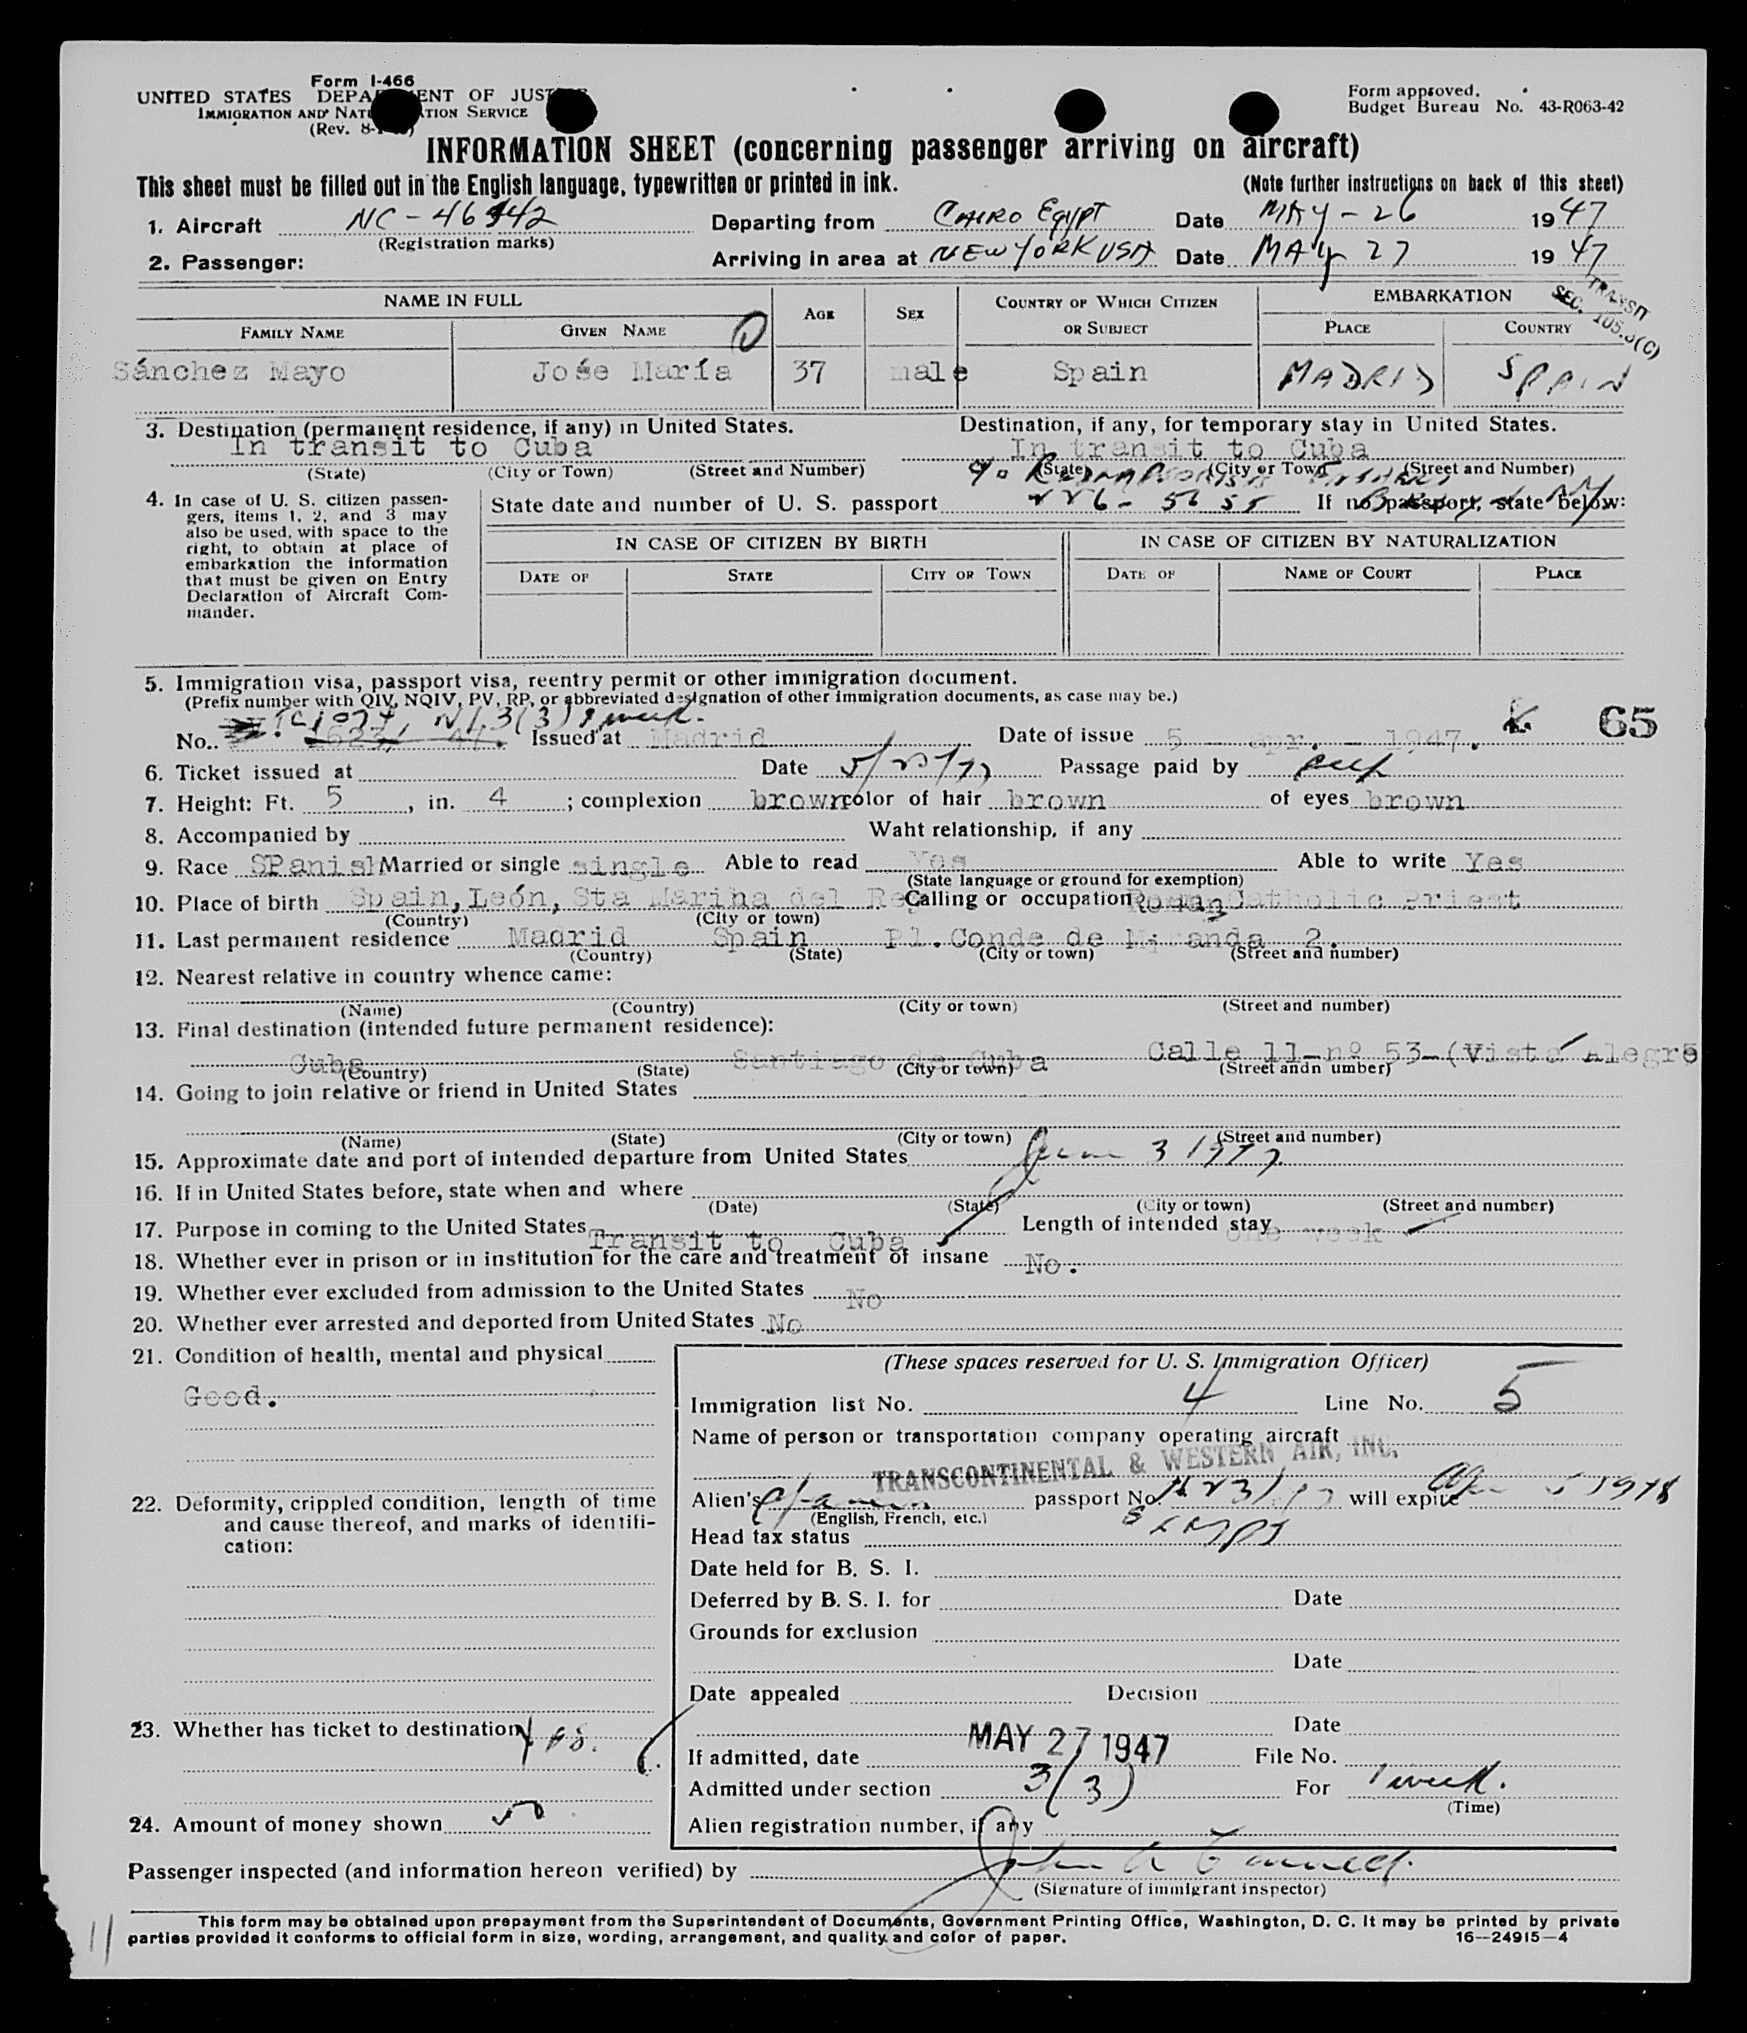 Form I-466
UNITED STATES DEPA ENT OF JUST
IMMIGRATION AND NATU TION SERVICE
(Rev. 8-
Form approved.
Budget Bureau No. 43-R063-42
INFORMATION SHEET (concerning passenger arriving on aircraft)
This sheet must be filled out in the English language, typewritten or printed in ink. (Note further instructions on back of this sheet)
1. Aircraft NC-46442 Departing from CAIRO EgypT Date MAY-26 1947
(Registration marks)
2. Passenger: Arriving in area at NEW YORK USA Date MAY 27 1947
TRANSIT
SEC. 105.3(C)
NAME IN FULL AGE SEX COUNTRY OF WHICH CITIZEN OR SUBJECT EMBARKATION
FAMILY NAME GIVEN NAME PLACE COUNTRY
Sánchez Mayo Jośe María 37 male Spain MADRID SPAIN
3. Destination (permanent residence, if any) in United States. Destination, if any, for temporary stay in United States.
In transit to Cuba In transit to Cuba
(State) (City or Town) (Street and Number) (State) (City or Town) (Street and Number)
4. In case of U. S. citizen passengers, items 1, 2, and 3 may also be used, with space to the right, to obtain at place of embarkation the information that must be given on Entry Declaration of Aircraft Commander.
State date and number of U. S. passport 226-5655 If no passport, state below:
IN CASE OF CITIZEN BY BIRTH IN CASE OF CITIZEN BY NATURALIZATION
DATE OF STATE CITY OR TOWN DATE OF NAME OF COURT PLACE
5. Immigration visa, passport visa, reentry permit or other immigration document.
(Prefix number with QIV, NQIV, PV, RP, or abbreviated designation of other immigration documents, as case may be.)
3(3) 1 week.
No. Issued at Madrid Date of issue 5 - apr. - 1947. 65
6. Ticket issued at Date Passage paid by self
7. Height: Ft. 5, in. 4; complexion brown color of hair brown of eyes brown
8. Accompanied by Waht relationship, if any
9. Race SPanish Married or single single Able to read Yes Able to write Yes
(State language or ground for exemption)
10. Place of birth Spain, León, Sta Marina del Rey Calling or occupation Roman Catholic Priest
(Country) (City or town)
11. Last permanent residence Madrid Spain Pl. Conde de Miranda 2.
(Country) (State) (City or town) (Street and number)
12. Nearest relative in country whence came:
(Name) (Country) (City or town) (Street and number)
13. Final destination (intended future permanent residence):
Cuba Santiago de Cuba Calle 11-nº 53-(Vista Alegre
(Country) (State) (City or town) (Street andn umber)
14. Going to join relative or friend in United States
(Name) (State) (City or town) (Street and number)
15. Approximate date and port of intended departure from United States June 3 1947
16. If in United States before, state when and where
(Date) (State) (City or town) (Street and number)
17. Purpose in coming to the United States Transit to Cuba Length of intended stay one week
18. Whether ever in prison or in institution for the care and treatment of insane No.
19. Whether ever excluded from admission to the United States No
20. Whether ever arrested and deported from United States No
21. Condition of health, mental and physical
Good.
22. Deformity, crippled condition, length of time and cause thereof, and marks of identification:
23. Whether has ticket to destination yes.
24. Amount of money shown 50
(These spaces reserved for U. S. Immigration Officer)
Immigration list No. 4 Line No. 5
Name of person or transportation company operating aircraft
TRANSCONTINENTAL & WESTERN AIR, INC.
Alien's passport No. will expire
(English, French, etc.)
Head tax status EXMPT
Date held for B. S. I.
Deferred by B. S. I. for Date
Grounds for exclusion
Date
Date appealed Decision
Date
If admitted, date MAY 27 1947 File No.
Admitted under section 3(3) For 1 week.
(Time)
Alien registration number, if any
Passenger inspected (and information hereon verified) by John
(Signature of immigrant inspector)
This form may be obtained upon prepayment from the Superintendent of Documents, Government Printing Office, Washington, D. C. It may be printed by private
parties provided it conforms to official form in size, wording, arrangement, and quality and color of paper. 16—24915-4
11